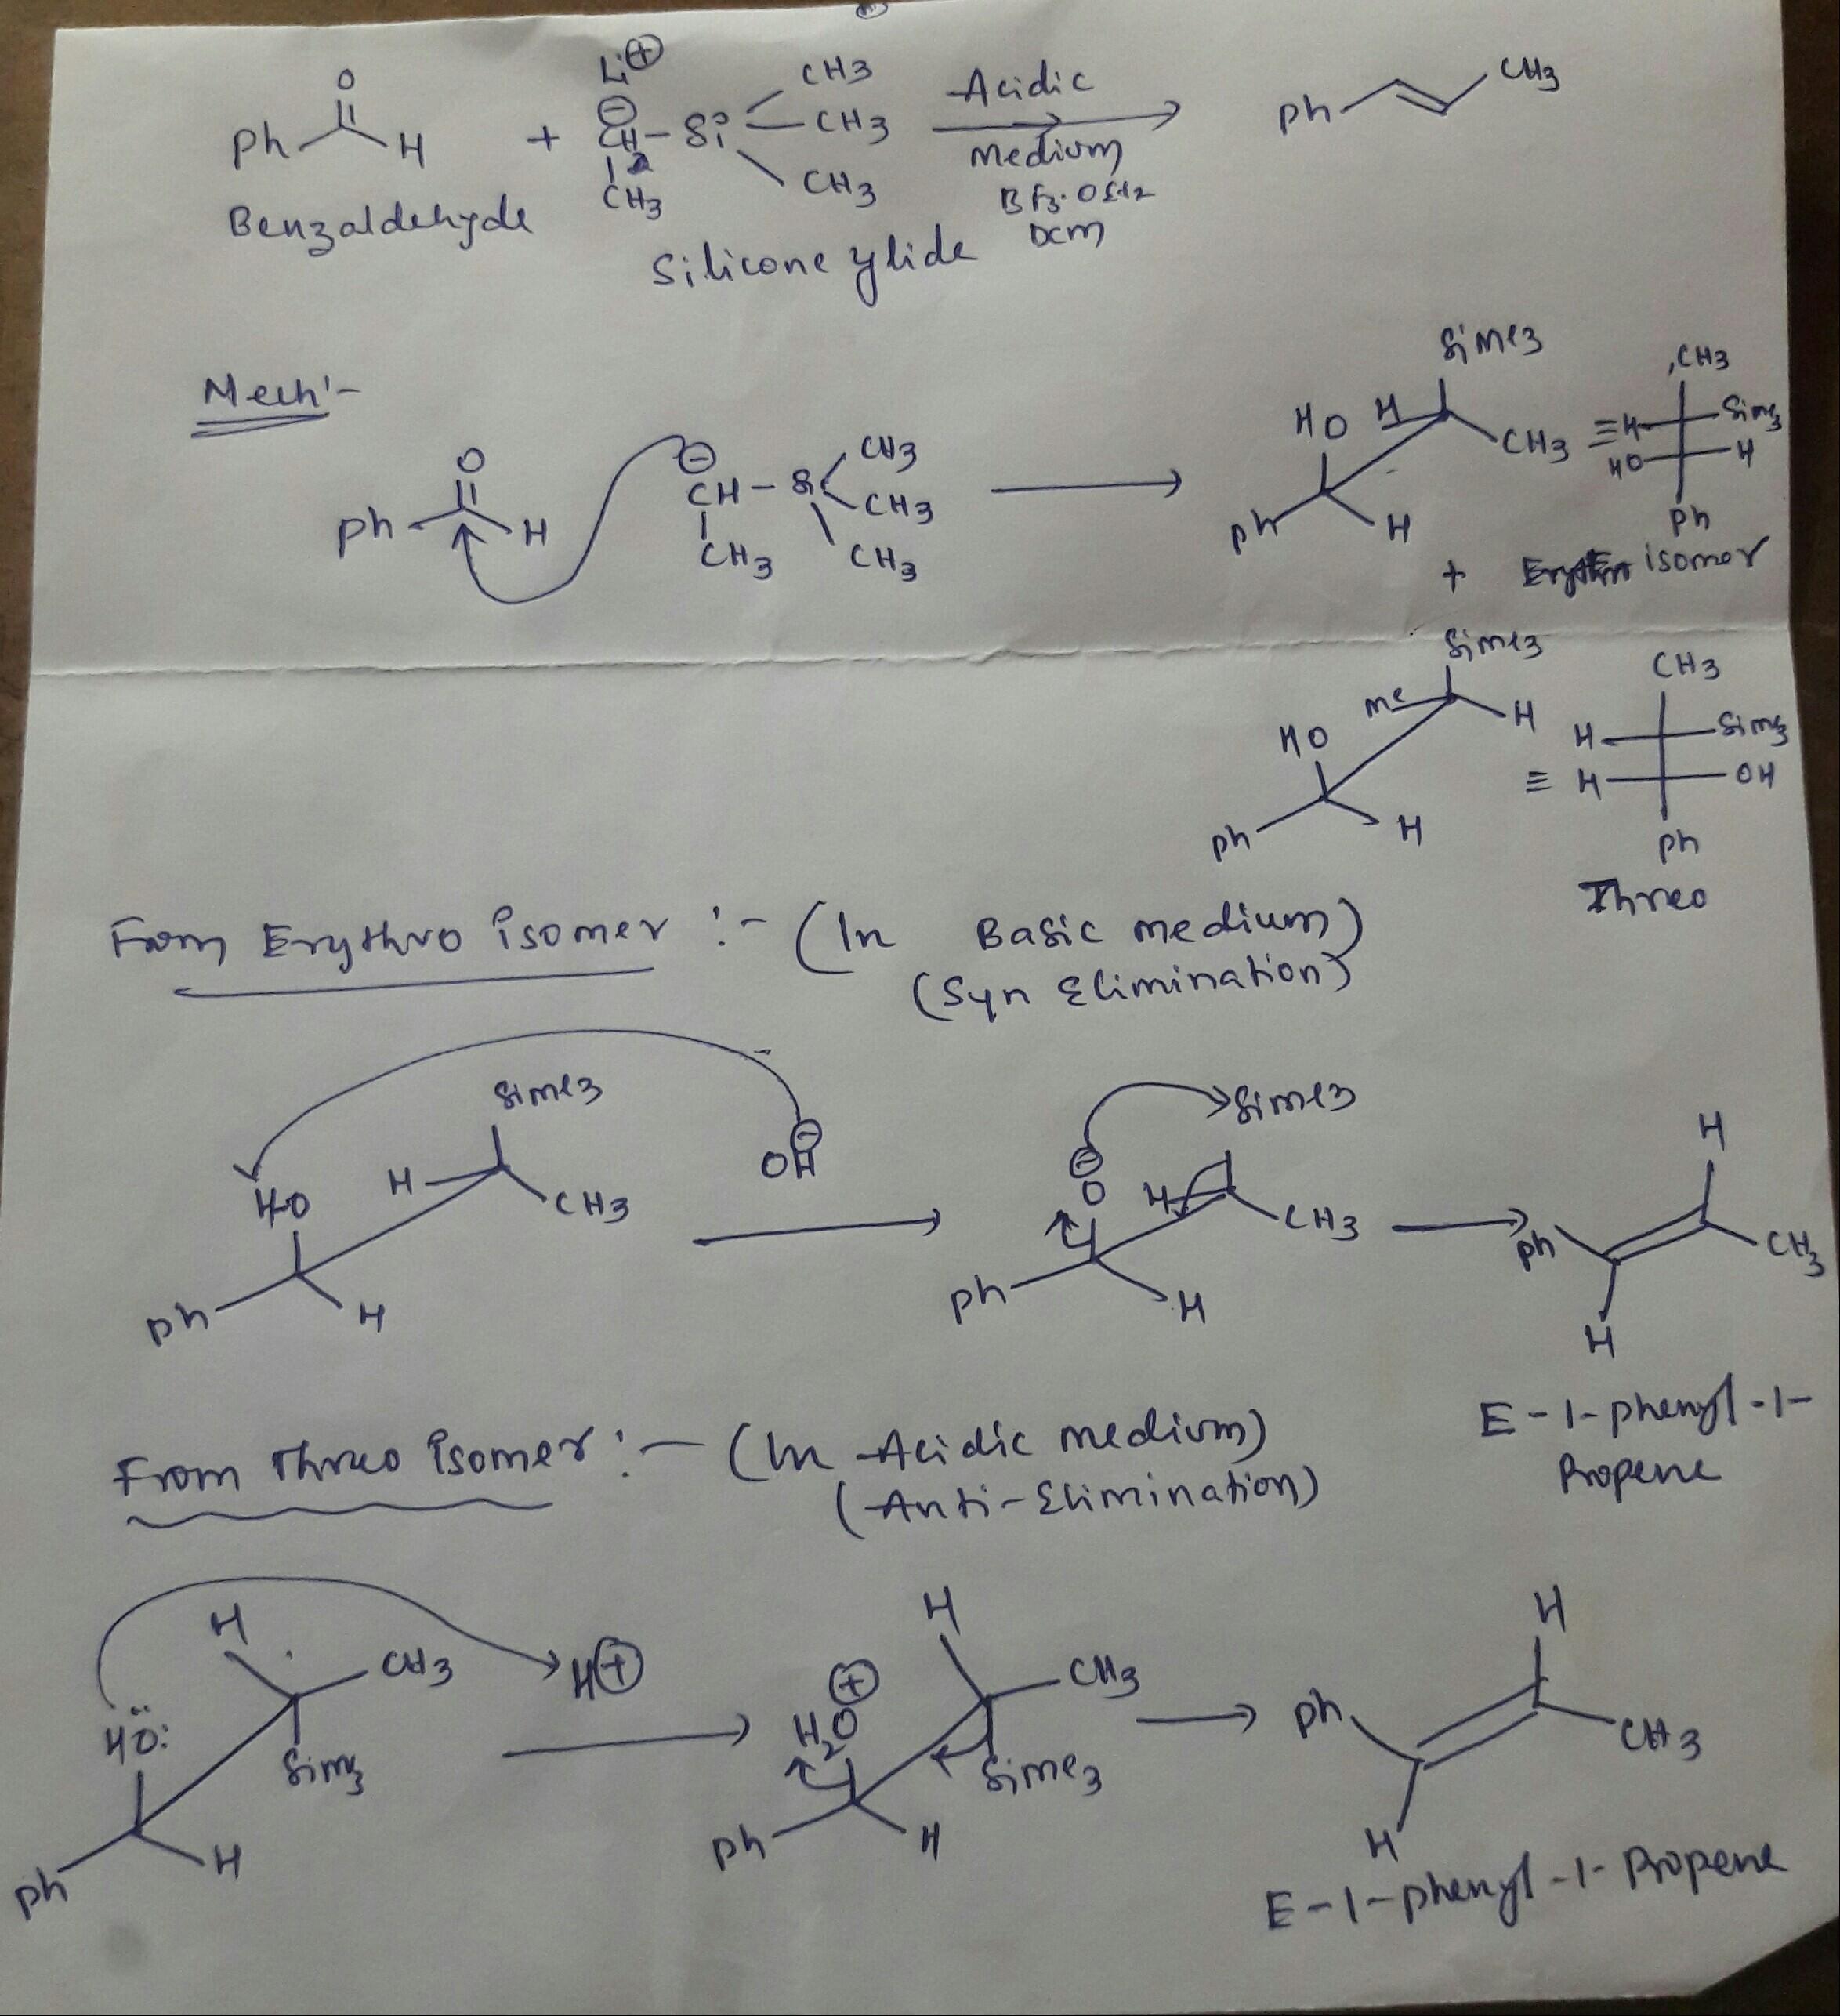 O Li⊕ CH3
Ph H + ⊖CH-Si CH3 Acidic Ph CH3
CH3 CH3 Medium
Benzaldehyde BF3·OEt2
Silicone ylide DCM
Mech'-
SiMe3 CH3
HO H CH3 ≡ H SiMe3
O ⊖ CH3 HO H
Ph H CH-Si CH3 Ph H Ph
CH3 CH3 + isomer
SiMe3 CH3
Me H H SiMe3
HO ≡ H OH
Ph H Ph
Threo
From Erythro isomer :- (In Basic medium)
(Syn Elimination)
SiMe3 ⊖ SiMe3 H
HO H CH3 OH ⊖ O H CH3 Ph CH3
Ph H Ph H H
E-1-phenyl-1-
Propene
From Threo isomer :- (In Acidic medium)
(Anti-Elimination)
H CH3 H⊕ H CH3 H
HÖ: SiMe3 ⊕ H2O SiMe3 Ph CH3
Ph H Ph H H
E-1-phenyl-1-Propene